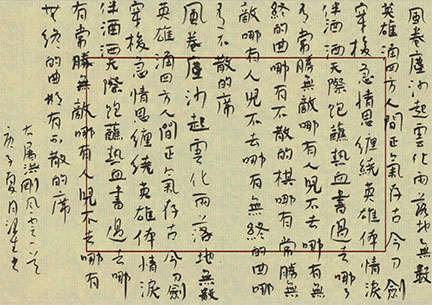 風卷塵沙起雲化雨落地無數
英雄洒四方人間正氣存古今刀劍
穿梭急情思纏繞英雄俠情淚
伴酒洒天際飽蘸熱血書過去哪
有常勝無敵哪有人兒不去哪有無
終的曲哪有不散的棋哪有常勝無
敵哪有人兒不去哪有無終的曲哪
有不散的席
風卷塵沙起雲化雨落地無數
英雄洒四方人間正氣存古今刀劍
穿梭急情思纏繞英雄俠情淚
伴酒洒天際飽蘸熱血書過去哪
有常勝無敵哪有人兒不去哪有
無終的曲哪有不散的席
屠洪剛風雲一
庚子夏月